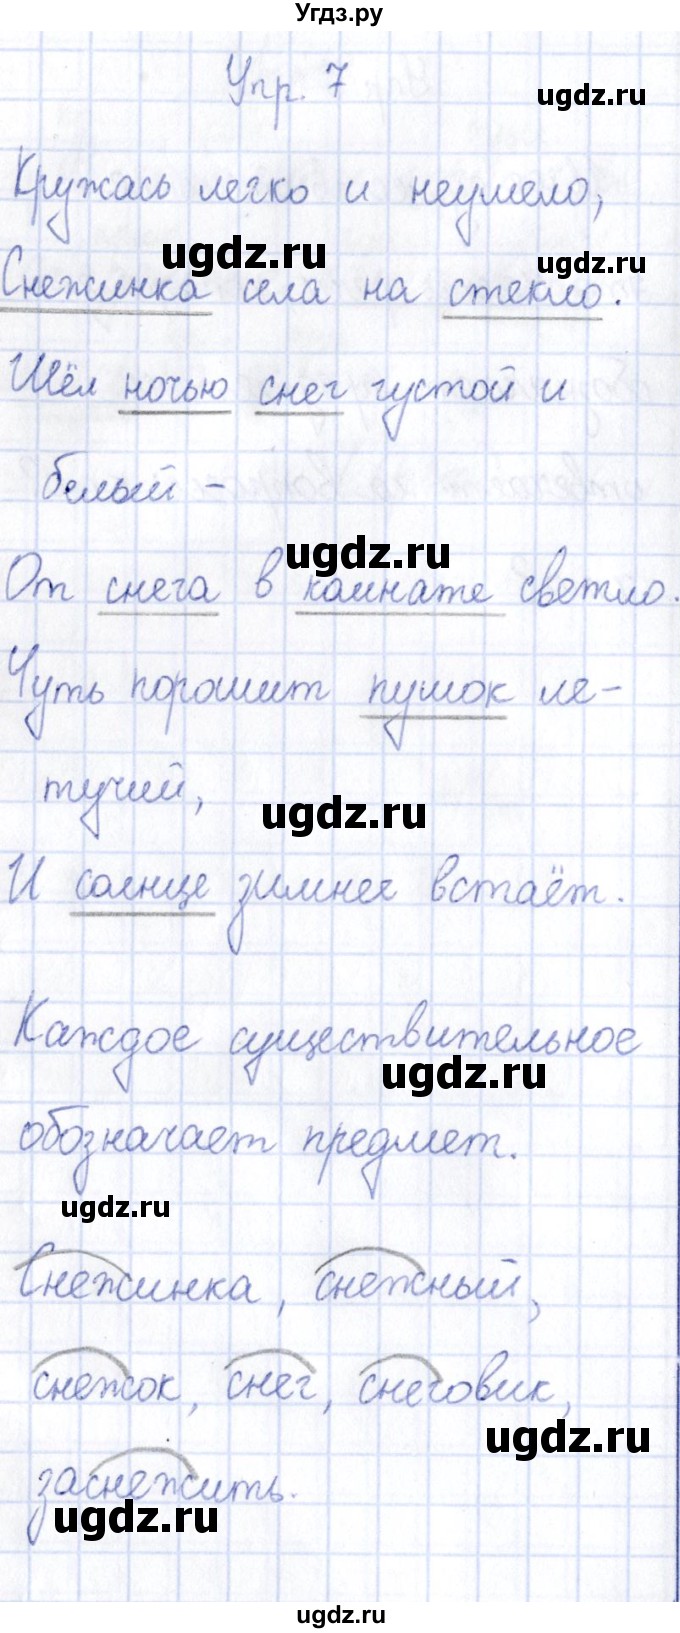 Угдз.ру
Упр. 7
ugdz.ru
Кружась легко и неумело,
ugdz.ru
ugdz.ru
Снежинка села на стекло.
Шёл ночью снег густой и
белый –
ugdz.ru
От снега в комнате светло.
Чуть порошит пушок ле-
тучий,
ugdz.ru
И солнце зимнее встаёт.
Каждое существительное
ugdz.ru
обозначает предмет.
ugdz.ru
Снежинка, снежный,
снежок, снег, снеговик,
ugdz.ru
заснежить.
ugdz.ru
ugdz.ru